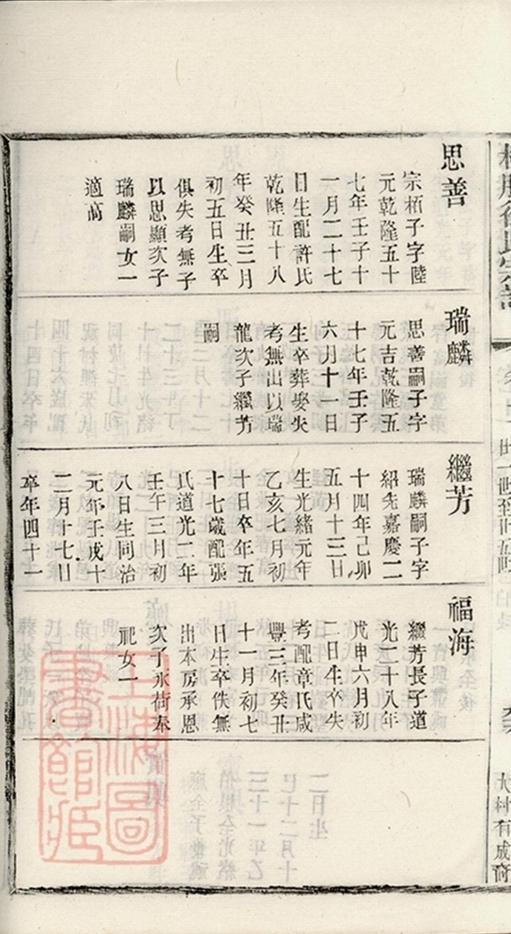 思善
宗栢子字陸
元乾隆五十
七年壬子十
一月二十七
日生配許氏
乾隆五十八
年癸丑三月
初五日生卒
俱失考無子
以思顯次子
瑞麟嗣女一
適高
瑞麟
思善嗣子字
元吉乾隆五
十七年壬子
六月十一日
生卒葬娶失
考無出以瑞
龍次子繼芳
嗣
繼芳
瑞麟嗣子字
紹先嘉慶二
十四年己卯
五月十三日
生光緒元年
乙亥七月初
十日卒年五
十七歲配張
氏道光二年
壬午三月初
八日生同治
元年壬戌十
二月十七日
卒年四十一
福海
繼芳長子道
光二十八年
戊申六月初
二日生卒失
考配章氏咸
豐三年癸丑
十一月初七
日生卒佚無
出本房承恩
次子永荷奉
祀女一
上海圖
書館藏